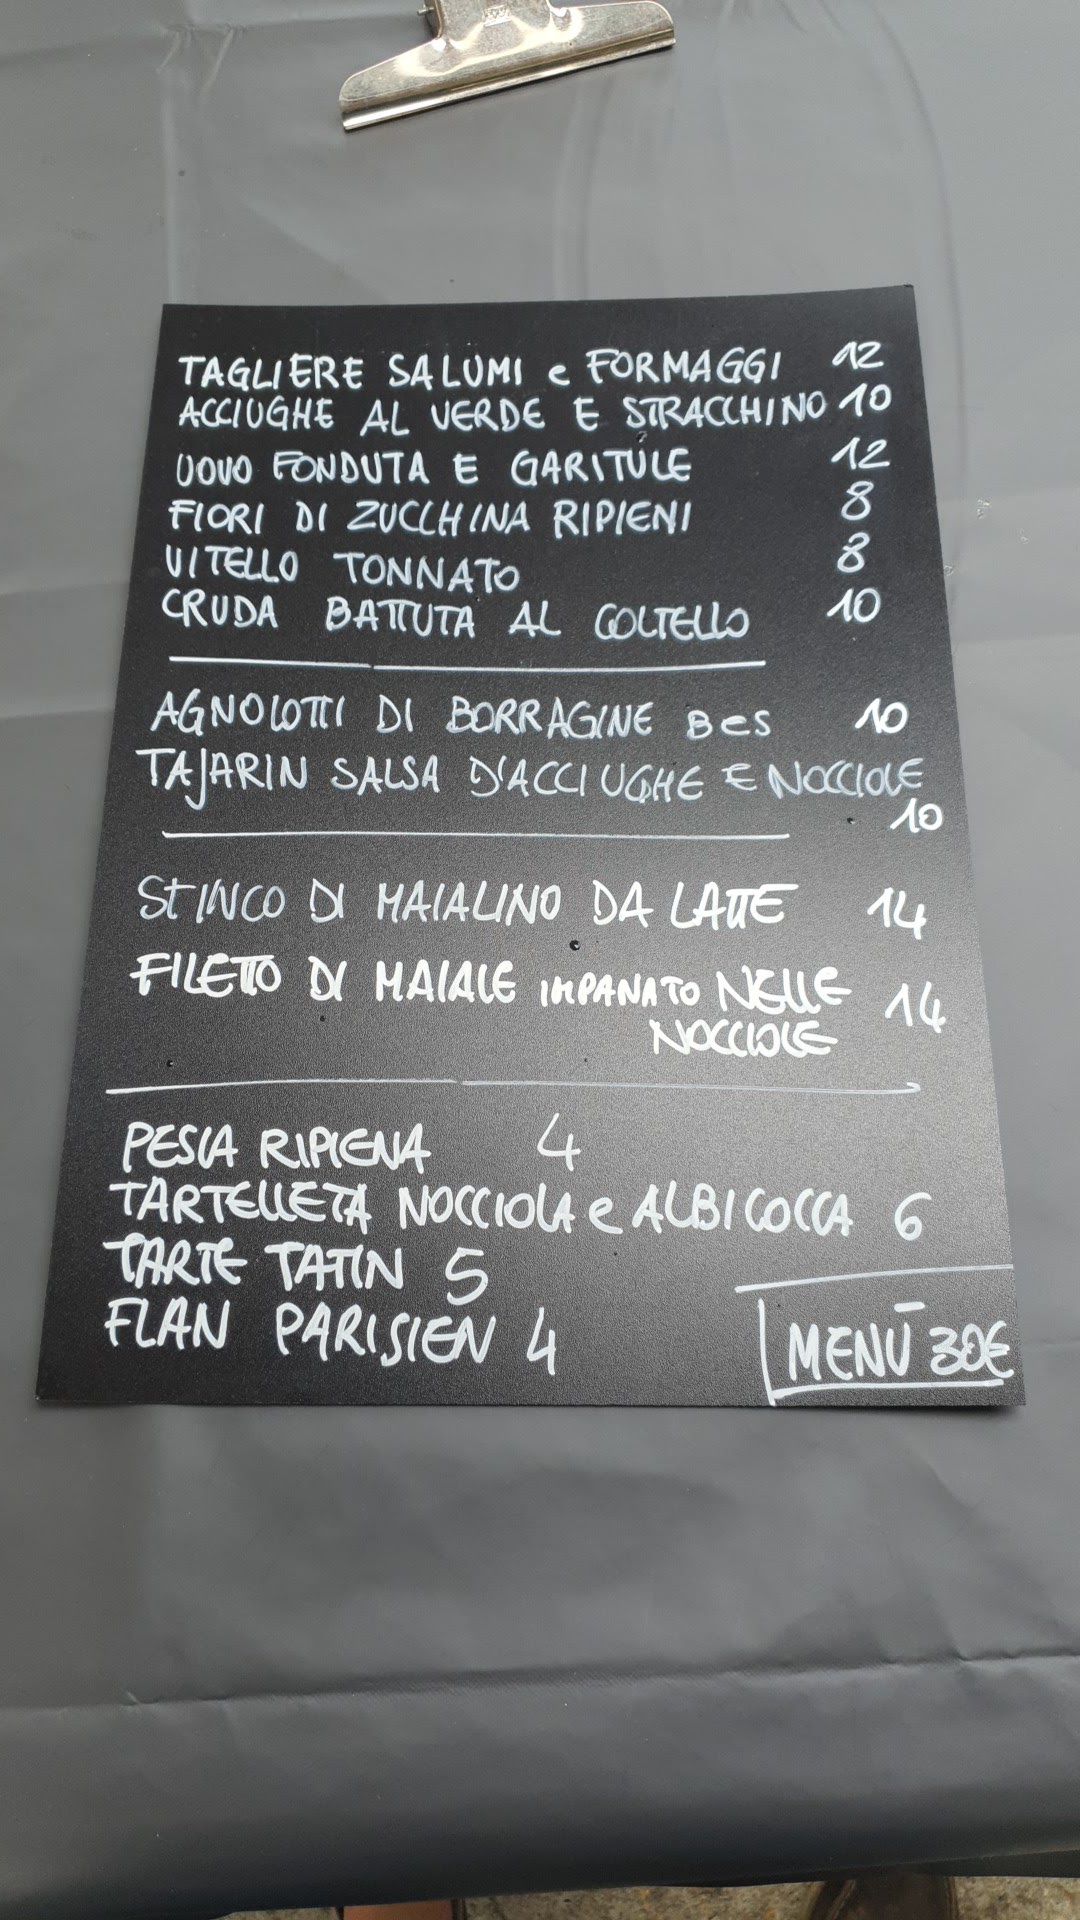 TAGLIERE SALUMI e FORMAGGI 12
ACCIUGHE AL VERDE E STRACCHINO 10
UOVO FONDUTA E GARITULE 12
FIORI DI ZUCCHINA RIPIENI 8
VITELLO TONNATO 8
CRUDA BATTUTA AL COLTELLO 10
AGNOLOTTI DI BORRAGINE BeS 10
TAJARIN SALSA D'ACCIUGHE E NOCCIOLE
10
STINCO DI MAIALINO DA LATTE 14
FILETTO DI MAIALE IMPANATO NELLE 14
NOCCIOLE
PESCA RIPIENA 4
TARTELLETA NOCCIOLA e ALBICOCCA 6
TARTE TATIN 5
FLAN PARISIEN 4
MENÙ 30€